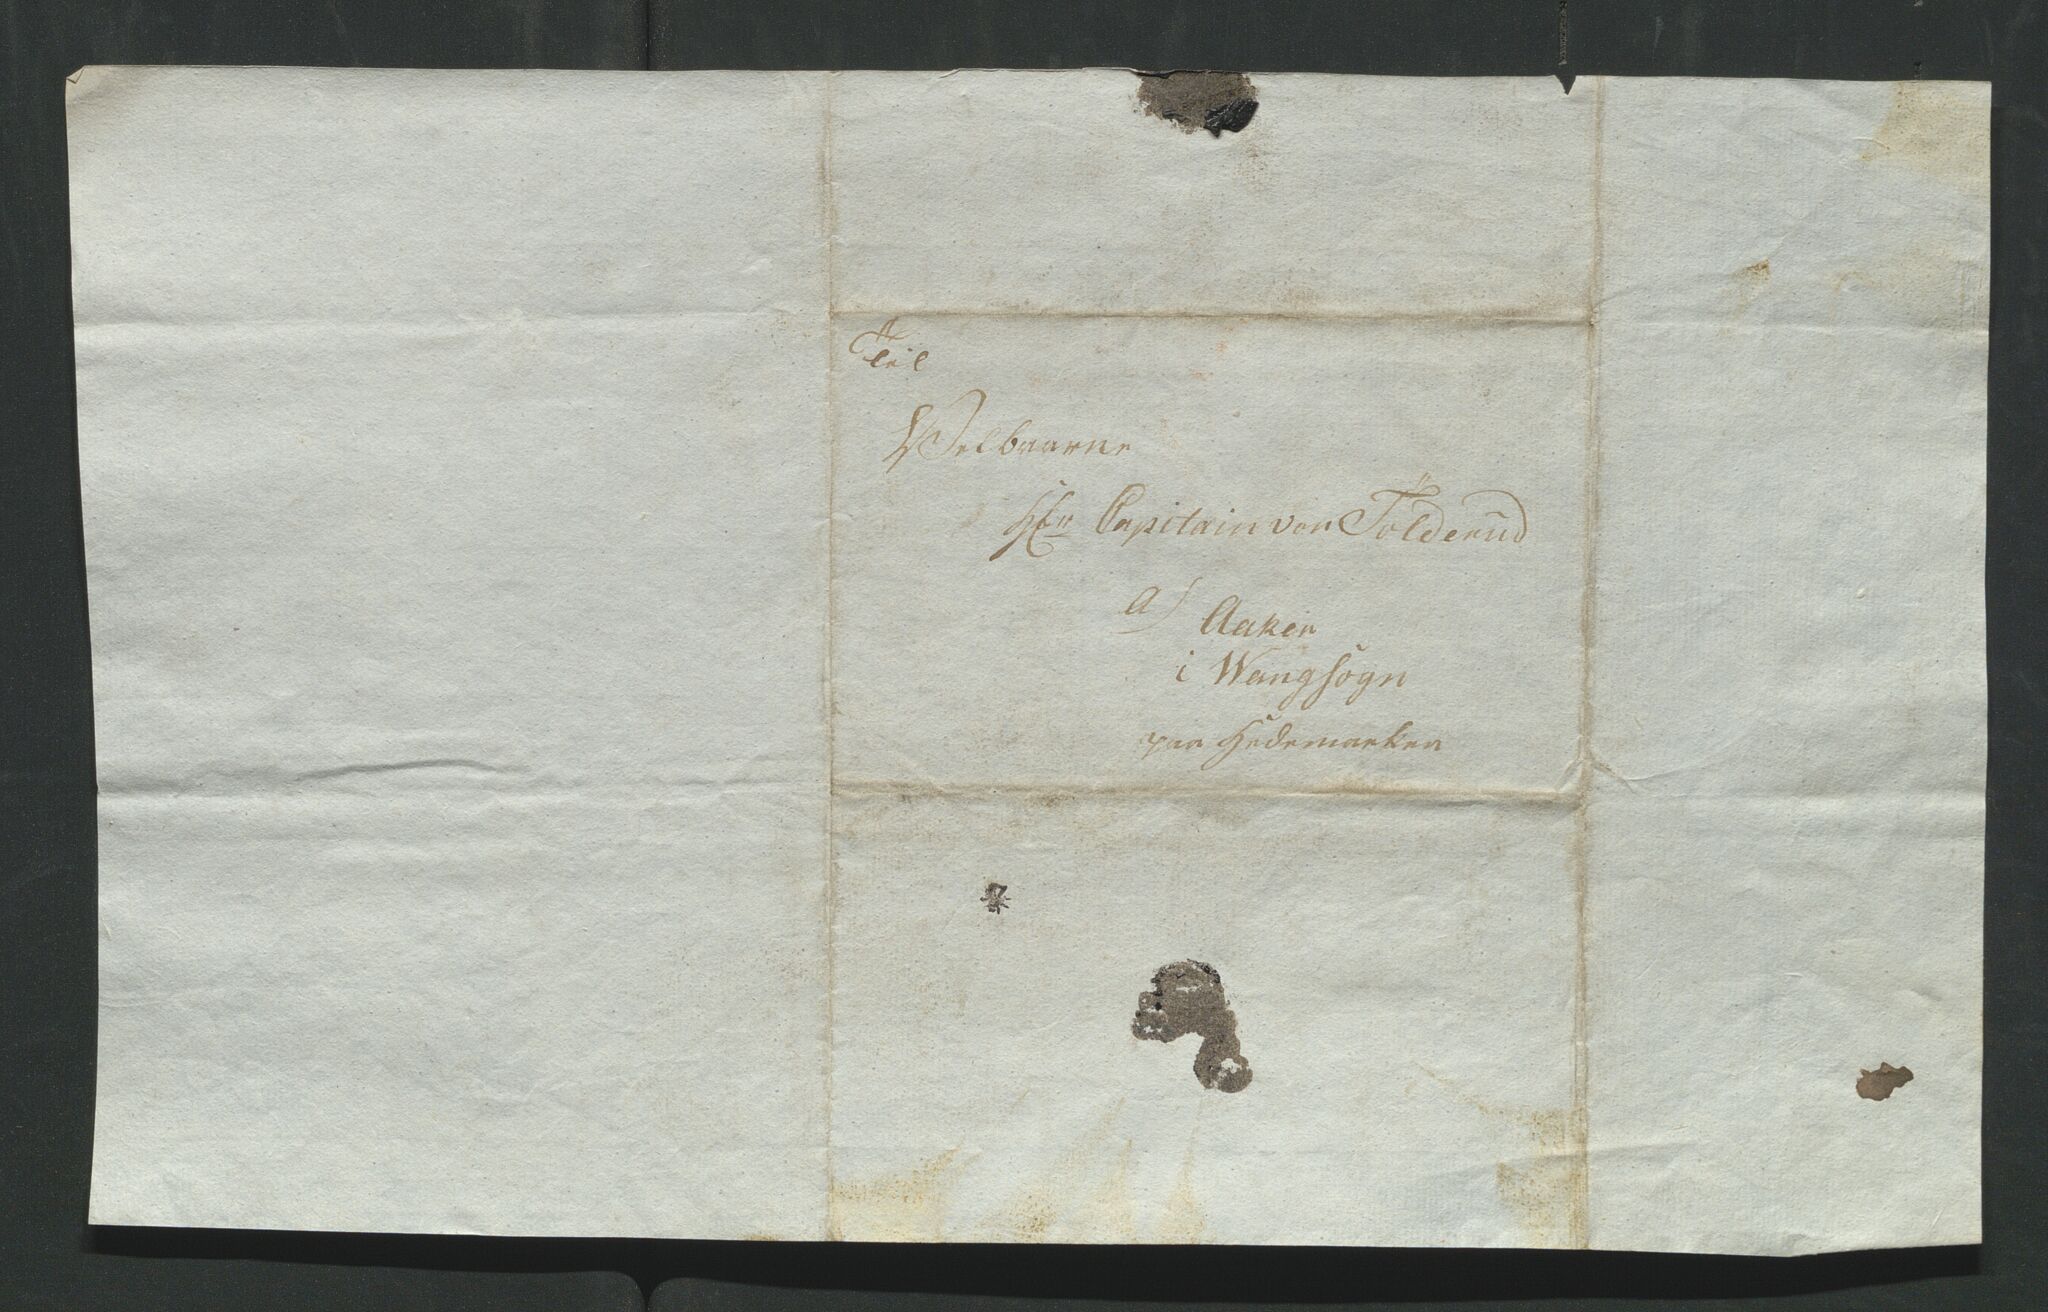 Til
Welbaarne
Hr Capitain von Tölderud
a/ Aaker
i Wangsogn
paa Hedemarken